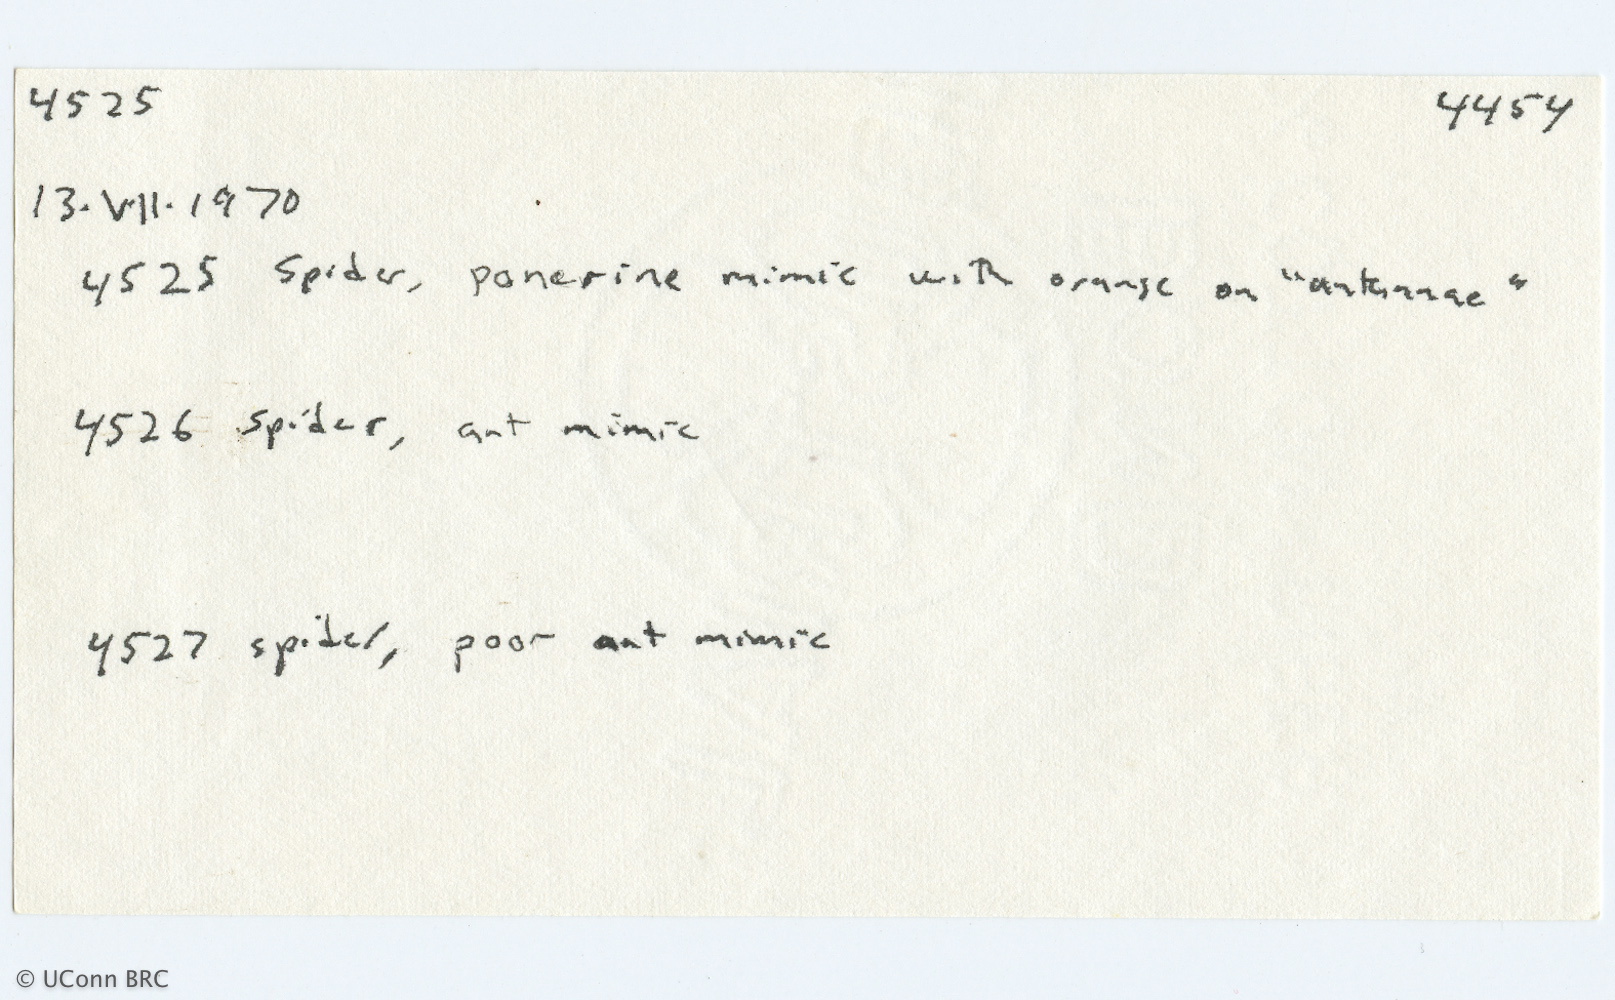 4525 4454
13.VII.1970
4525 Spider, ponerine mimic with orange on "antennae"
4526 Spider, ant mimic
4527 spider, poor ant mimic
© UConn BRC